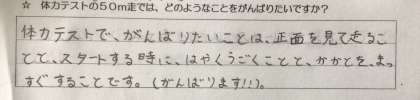 ☆ 体力テストの50m走では、どのようなことをがんばりたいですか？
体力テストで、がんばりたいことは、正面を見て走るこ
とで、スタートする時に、はやくうごくことと、かかとを、まっ
すぐすることです。(がんばります!!)。